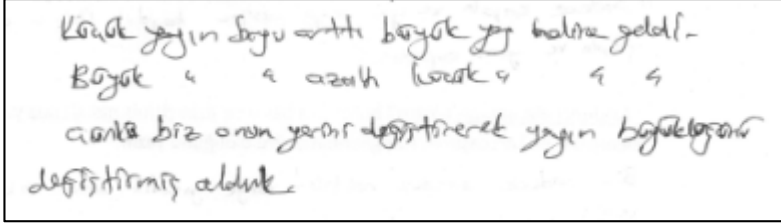 Küçük yayın boyu arttı büyük yay haline geldi.
Büyük " " azaldı küçük " " "
çünkü biz onun yerini değiştirerek yayın büyüklüğünü
değiştirmiş olduk.